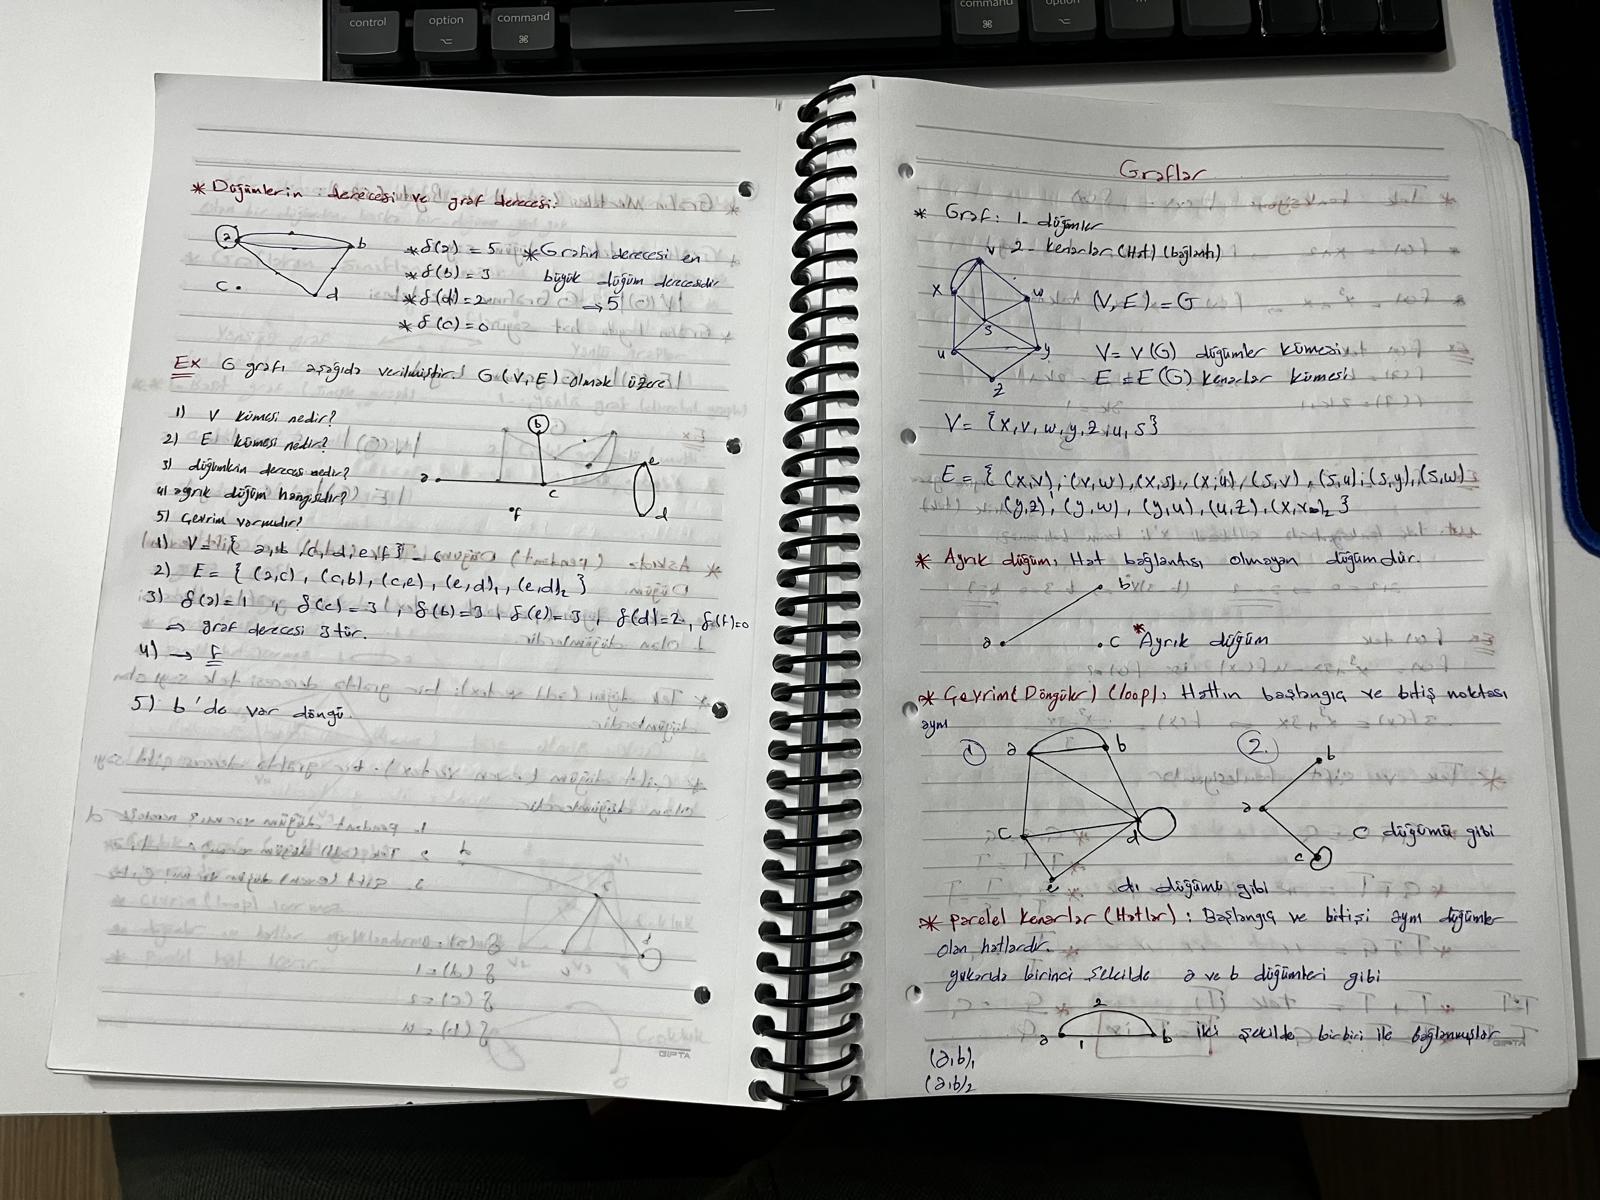 control
option
⌥
command
⌘
command
⌘
option
⌥
* Düğümlerin derecesi ve graf derecesi:
a
b
c
d
*δ(a) = 5
*δ(b) = 3
*δ(d) = 2
*δ(c) = 0
*Grafın derecesi en
büyük düğüm derecesidir
⇒ 5
Ex G grafı aşağıda verilmiştir. G(V,E) olmak üzere
1) V kümesi nedir?
2) E kümesi nedir?
3) düğümlerin derecesi nedir?
4) ayrık düğüm hangisidir?
5) Çevrim varmıdır?
b
a
c
e
d
f
1) V = { a, b, c, d, e, f } = 6
2) E = { (a,c), (c,b), (c,e), (e,d)₁, (e,d)₂ }
3) δ(a)=1, δ(c)=3, δ(b)=3, δ(e)=3, δ(d)=2, δ(f)=0
⇒ graf derecesi 3 tür.
4) → f
5) b'de var döngü.
GIPTA
Graflar
* Graf: 1- düğümler
2- kenarlar (Hat) (bağlantı)
v
x
w
s
u
y
z
(V, E) = G
V = V(G) düğümler kümesi
E = E(G) kenarlar kümesi
V = {x, v, w, y, z, u, s}
E = { (x,v)₁, (v,w), (x,s), (x,u), (s,v), (s,u), (s,y), (s,w)
(y,z), (y,w), (y,u), (u,z), (x,v)₂ }
* Ayrık düğüm: Hat bağlantısı olmayan düğümdür.
b
a
c * Ayrık düğüm
* Çevrim (Döngüler) (loop): Hattın başlangıç ve bitiş noktası
aynı
1
a
b
c
d
e
2.
b
a
c
C düğümü gibi
dı düğümü gibi
* Paralel Kenarlar (Hatlar): Başlangıç ve bitişi aynı düğümler
olan hatlardır.
yukarıda birinci şekilde a ve b düğümleri gibi
2
a 1 b iki şekilde birbiri ile bağlanmışlar
(a,b)₁
(a,b)₂
GIPTA